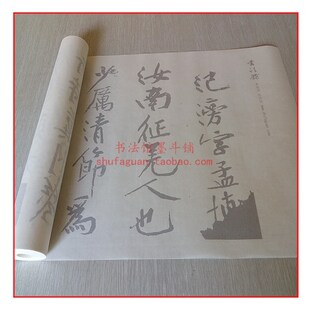 范滂字孟博
汝南征羌人也
少厲清節為
书法馆墨斗铺
shufaguan.taobao.com